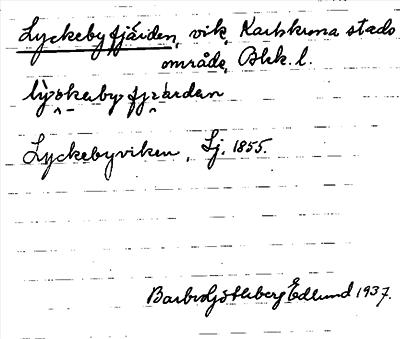 Lyckebyfjärden, vik, Karlskrona stads
område, Blek. l.
Lyckebyviken, Sj. 1855.
Barbro Götlsberg Edlund 1937.